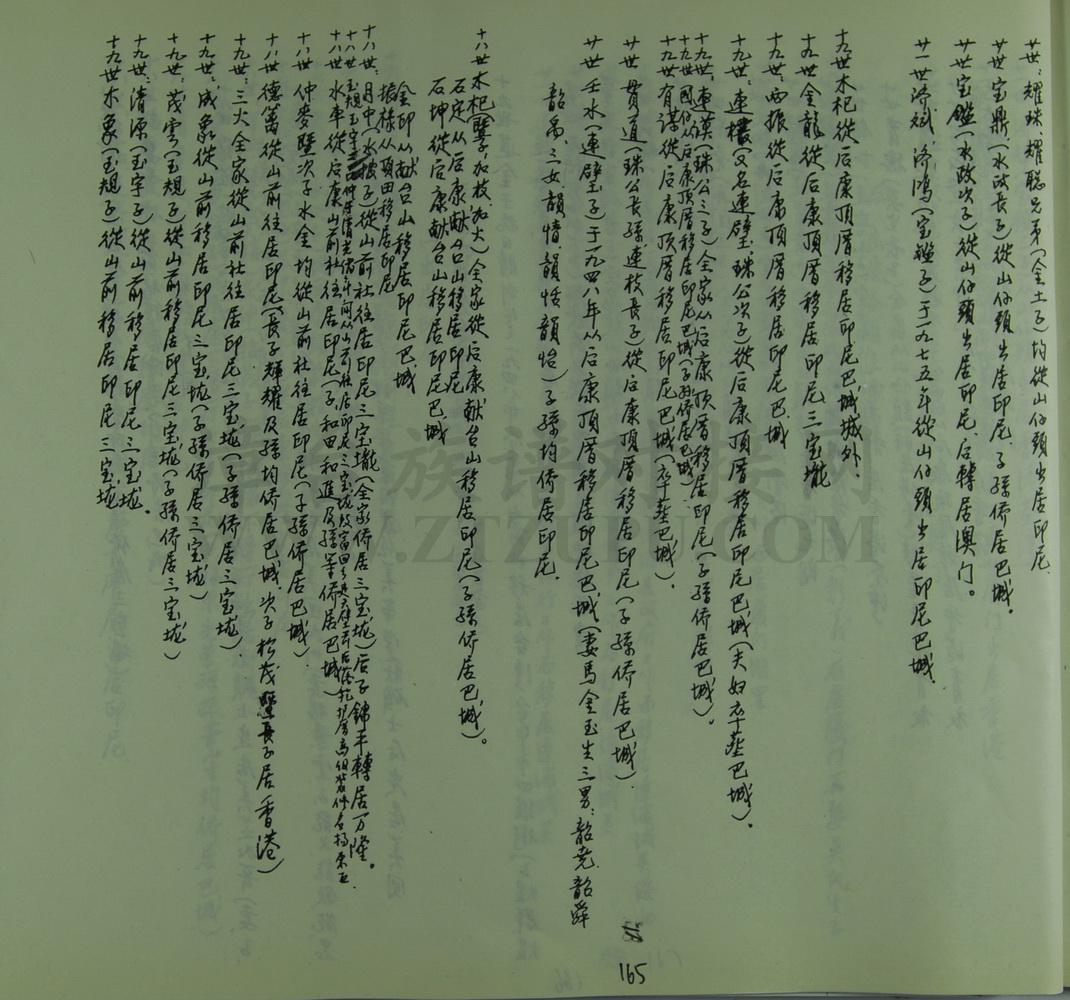 廿世：耀珠、耀聪兄弟（金土子）均從山仔頭出居印尼.
廿世宝鼎（水政長子）從山仔頭出居印尼，子孫侨居巴城。
廿世宝鑑（水政次子）從山仔頭出居印尼，后轉居澳门。
廿一世济斌、济鴻（宝鑑子）于一九七五年從山仔頭出居印尼巴城
十九世木杞從后康頂厝移居印尼巴城城外.
十九世金龍從后康頂厝移居印尼三宝壠
十九世：西振從后康頂厝移居印尼巴城
十九世：連 （又名連璧，珠公次子）從后康頂厝移居印尼巴城（夫妇卒葬巴城）.
十九世：連漢（珠公三子）全家从后康頂厝移居印尼（子孫侨居巴城）.
十九世國仔从后康頂厝移居印尼巴城（子孫侨居巴城）
十九世有謀從后康頂厝移居印尼巴城（卒葬巴城）.
廿世貫道（珠公長孫，連枝長子）從后康頂厝移居印尼（子孫侨居巴城）.
廿世壬水（連璧子）于一九四八年从后康頂厝移居印尼巴城（妻馬金玉生三男：韶堯、韶舜
韶禹，三女，韻惜、韻恬、韻怡）子孫均侨居印尼.
十八世木杞（暨子加枝、加火）全家從后康献台山移居印尼（子孫侨居巴城）。
石定从后康献台山移居印尼
石坤從后康献台山移居印尼巴城
金印从献台山移居印尼巴城
振祿从頂田移居印尼
十八世：月中（水坡子）從山前社往居印尼三宝壠（全家侨居三宝垅）后子錦平轉居万隆。
十八世玉規玉宇 仲 清光緒年间从山前社往居印尼三宝垅
十八世水車從后康山前社往居印尼（子和田和進及孫等侨居巴城）
十八世仲麥暨次子水金均從山前社往居印尼（子孫侨居巴城）
十八世德篙從山前往居印尼（長子輝耀及孫均侨居巴城，次子松茂暨長子居香港）
十九世：三火全家從山前社往居印尼三宝垅（子孫侨居三宝垅）.
十九世：成象從山前移居印尼三宝垅（子孫侨居三宝垅）
十九世：茂雲（玉規子）從山前移居印尼三宝垅（子孫侨居三宝垅）
十九世：清源（玉宇子）從山前移居印尼三宝垅。
十九世木象（玉規子）從山前移居印尼三宝垅
165
族谱对接网
WWW.ZTZUPU.COM